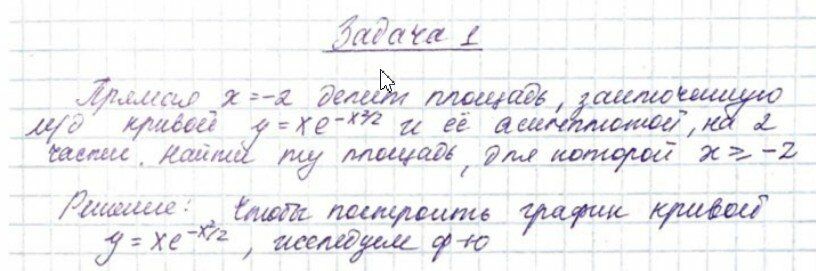 Задача 1
Прямая x = -2 делит площадь, заключенную
м/д кривой y = xe^{-x²/2} и её асимптотой, на 2
части. Найти ту площадь, для которой x ≥ -2
Решение: Чтобы построить график кривой
y = xe^{-x²/2}, исследуем ф-ю